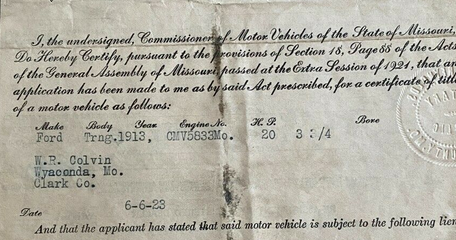 I, the undersigned, Commissioner of Motor Vehicles of the State of Missouri,
Do Hereby Certify, pursuant to the provisions of Section 18, Page 88 of the Acts
of the General Assembly of Missouri, passed at the Extra Session of 1921, that an
application has been made to me as by said Act prescribed, for a certificate of title
of a motor vehicle as follows:
Make Body Year Engine No. H.P. Bore
Ford Trng. 1913, CMV5833Mo. 20 3 3/4
W.R. Colvin
Wyaconda, Mo.
Clark Co.
Date 6-6-23
And that the applicant has stated that said motor vehicle is subject to the following lien